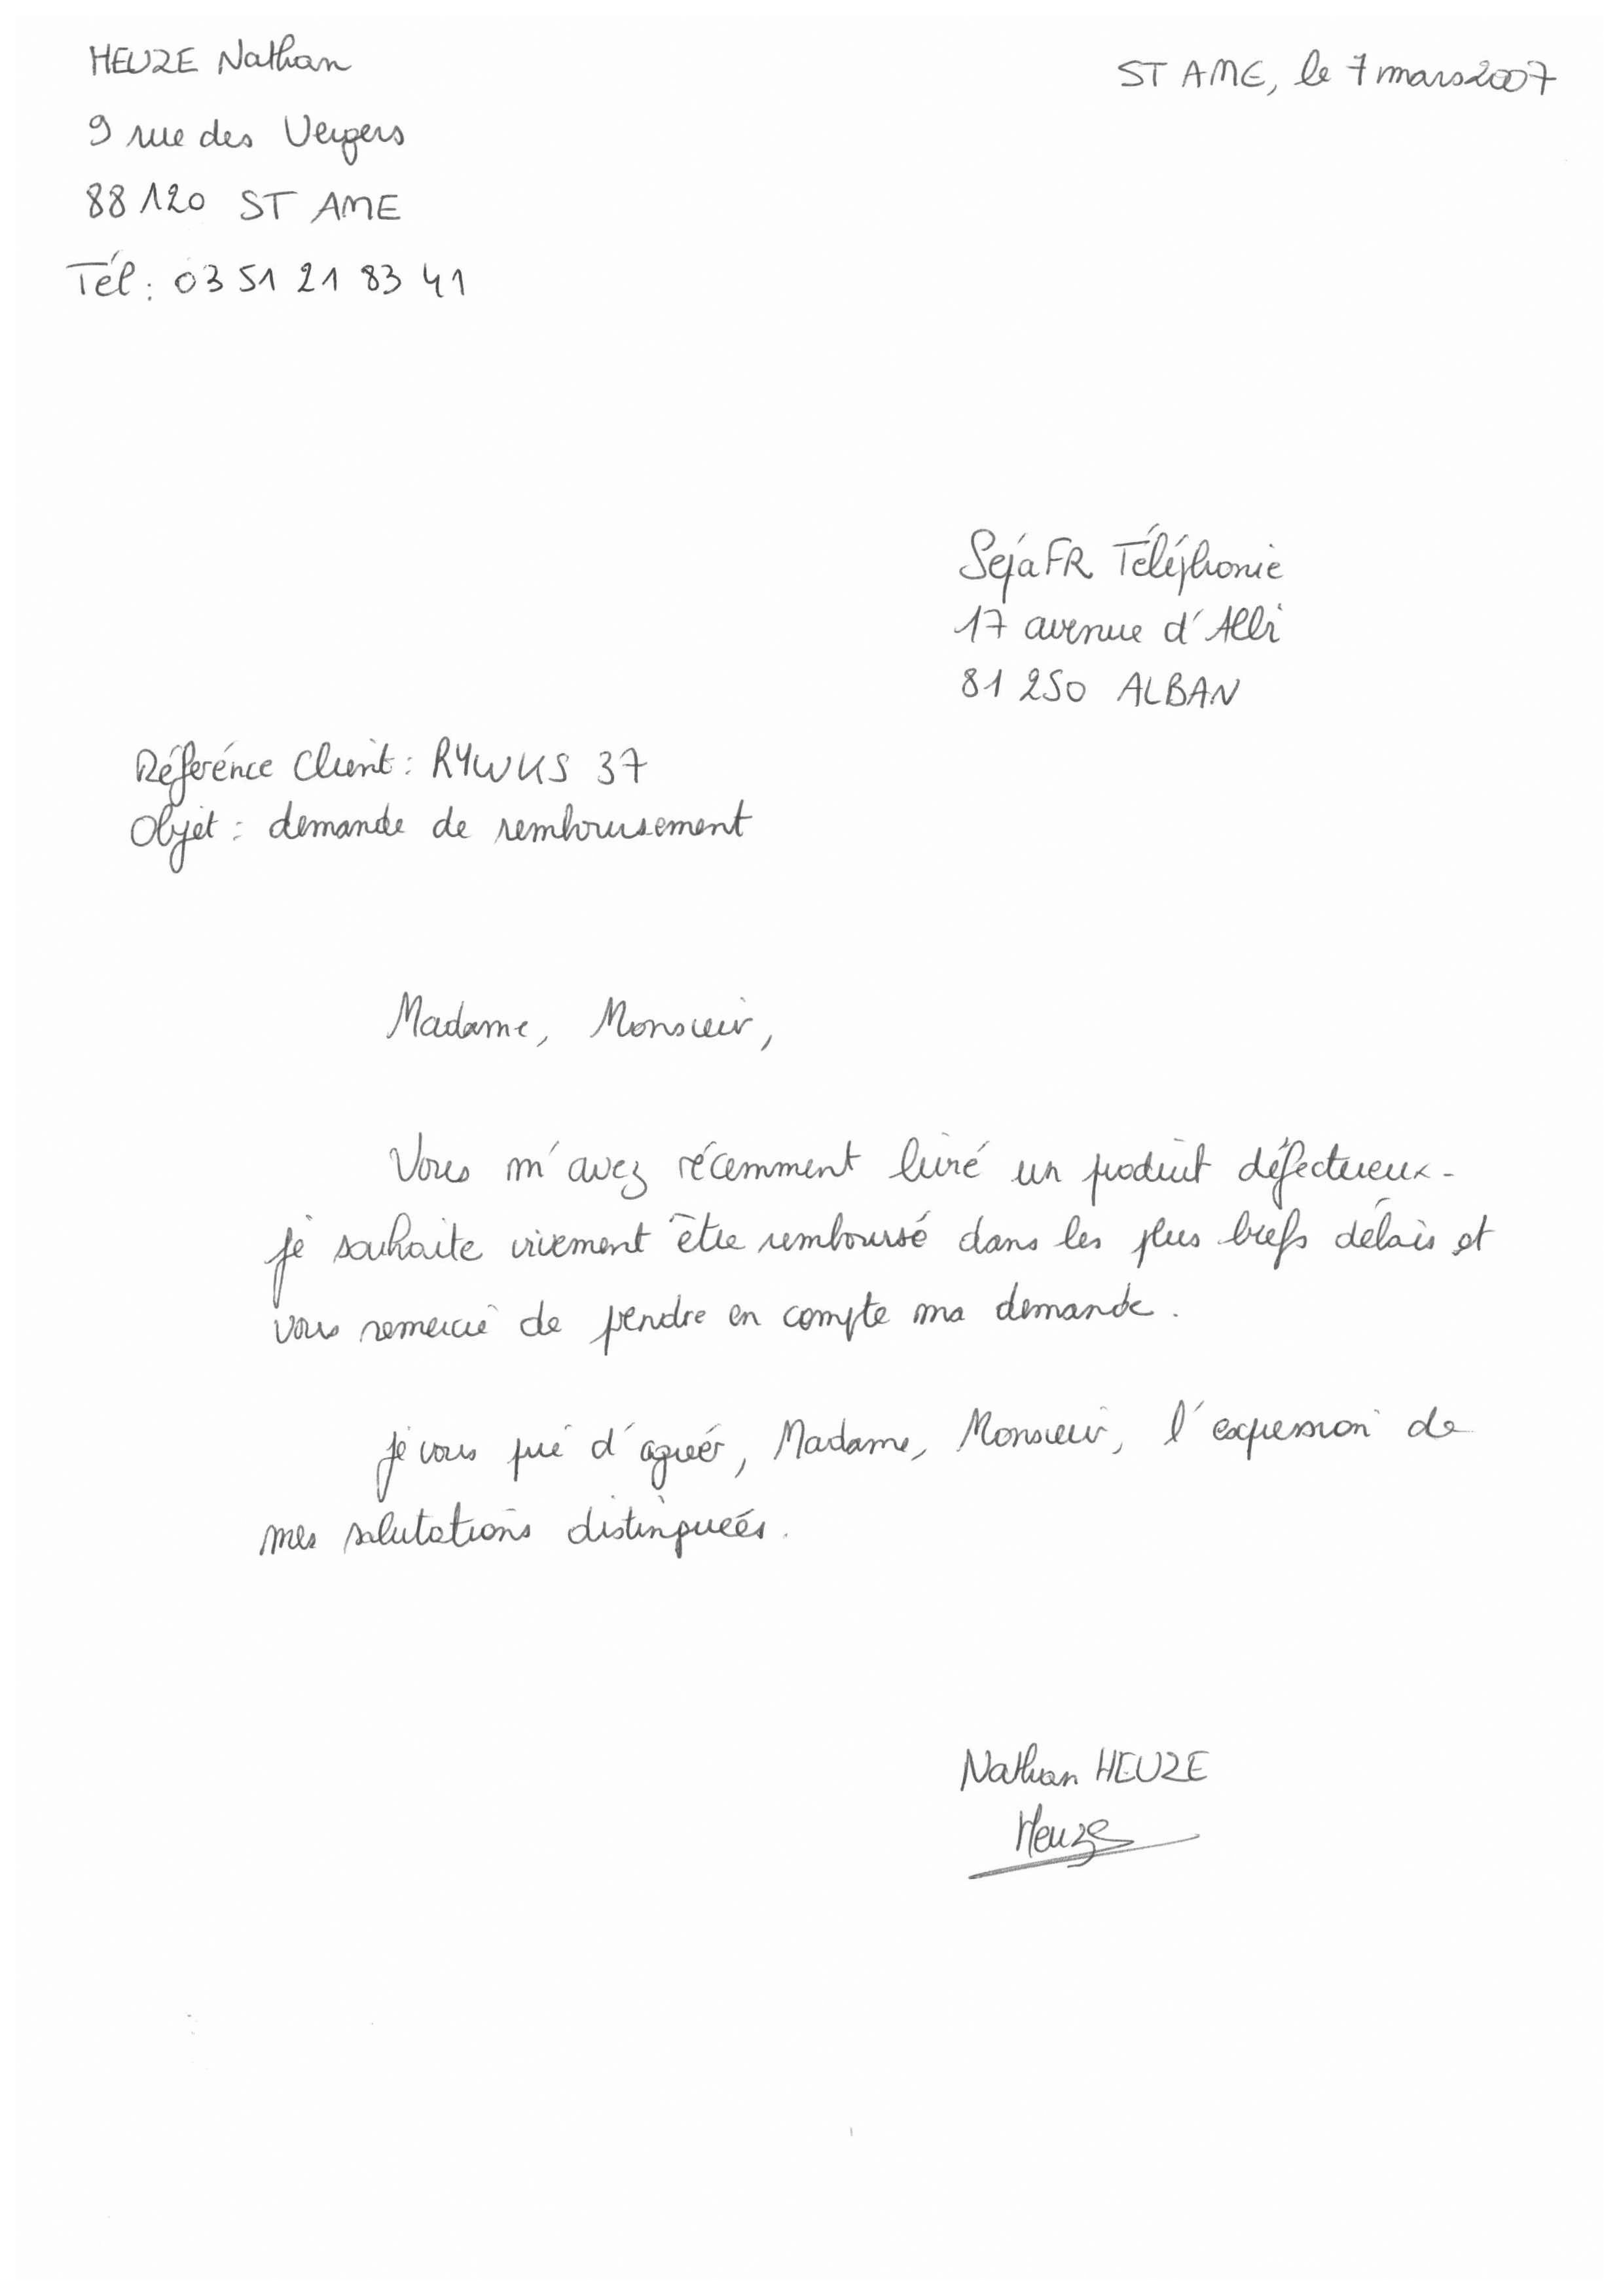 HEUZE Nathan
ST AME, le 7 mars 2007
9 rue des Vergers
88 120 ST AME
Tél : 03 51 21 83 41
SejaFR Téléphonie
17 avenue d'Albi
81 250 ALBAN
Référence Client : RYWKS 37
Objet : demande de remboursement
Madame, Monsieur,
Vous m'avez récemment livré un produit défectueux.
Je souhaite vivement être remboursé dans les plus brefs délais et
vous remercie de prendre en compte ma demande.
Je vous prie d'agréer, Madame, Monsieur, l'expression de
mes salutations distinguées.
Nathan HEUZE
Heuze